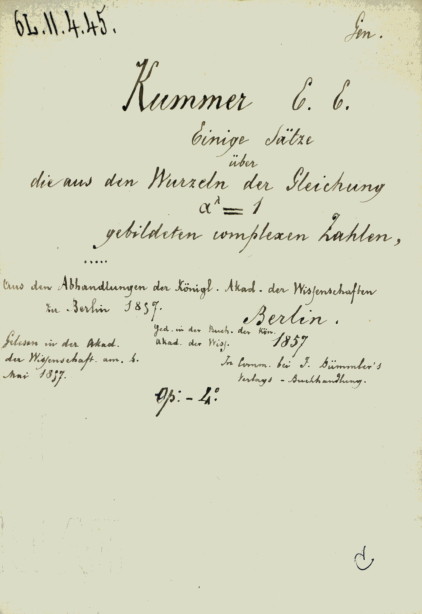 6L.11.4.45.
Gen.
Kummer E. E.
Einige Sätze
über
die aus den Wurzeln der Gleichung
α^λ = 1
gebildeten complexen Zahlen,
.....
Aus den Abhandlungen der Königl. Akad. der Wissenschaften
zu Berlin 1857.
Berlin.
Ged. in der Buch. der Kön.
Akad. der Wiss.
1857
Gelesen in der Akad.
der Wissenschaft. am.
Mai 1857.
In Comm. bei F. Dümmler's
Verlags-Buchhandlung.
4°